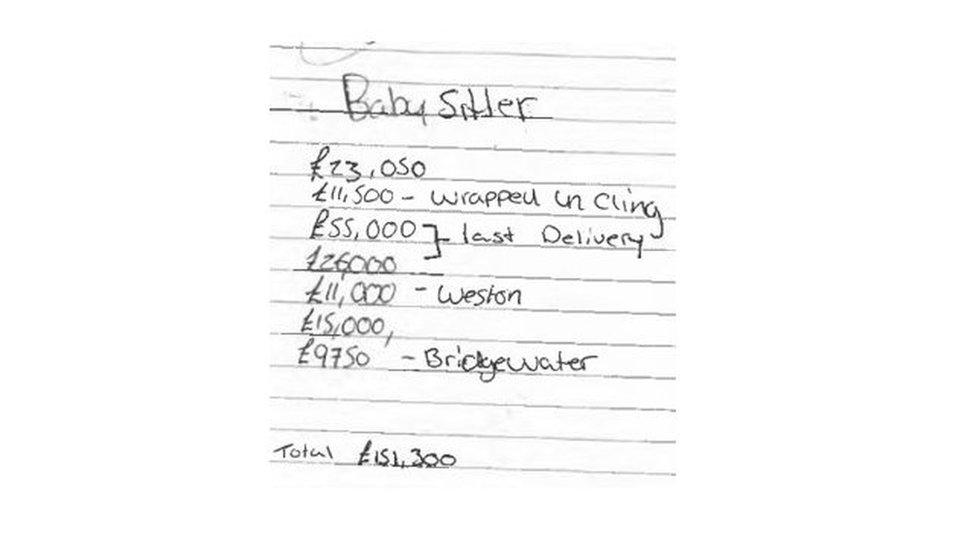 Baby Sitter
£23,050
£11,500 - wrapped in cling
£55,000 } last Delivery
£26000
£11,000 - Weston
£15,000,
£9750 - Bridgewater
Total £151,300